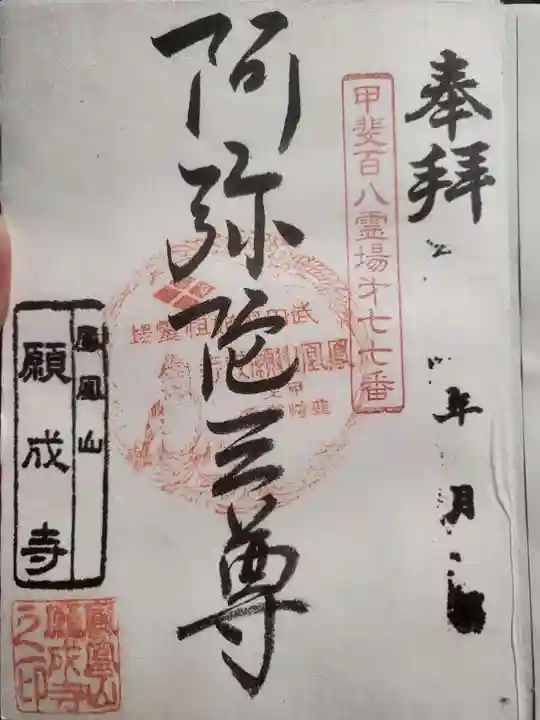 奉拝
年 月
甲斐百八霊場第七七番
阿弥陀三尊
鳳凰山
願成寺
鳳凰山
願成寺
之印